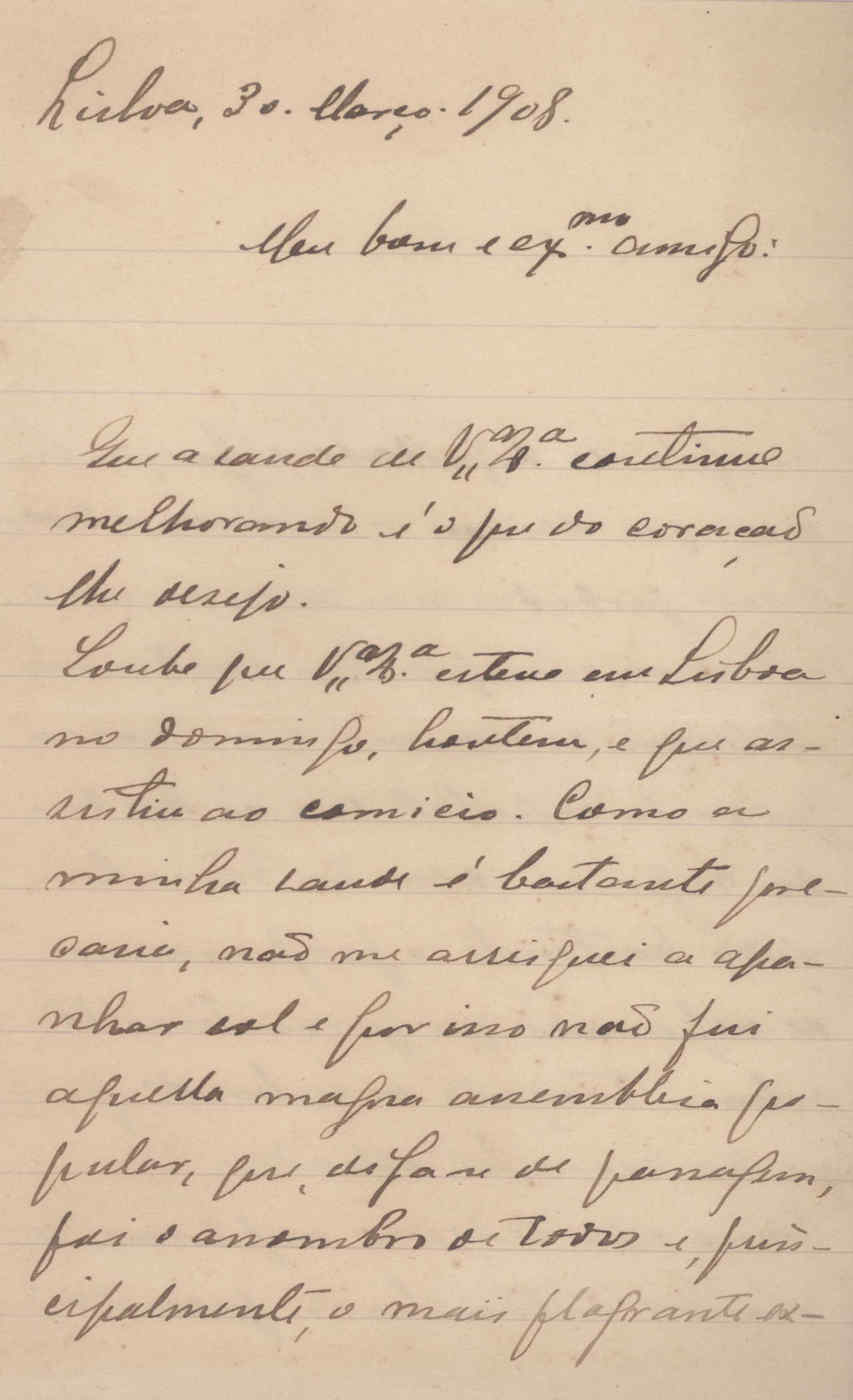 Lisboa, 30. Março. 1908.
Meu bom e ex.mo amigo:
Que a saude de V. Ex.a continue
melhorando é o que do coração
lhe desejo.
Soube que V. Ex.a esteve em Lisboa
no domingo, hontem, e que as-
sistiu ao comicio. Como a
minha saude é bastante pre-
caria, não me arrisquei a apa-
nhar sol e por isso não fui
aquella magna assembleia po-
pular, que, diga-se de passagem,
foi o assombro de todos e, prin-
cipalmente, o mais flagrante ex-